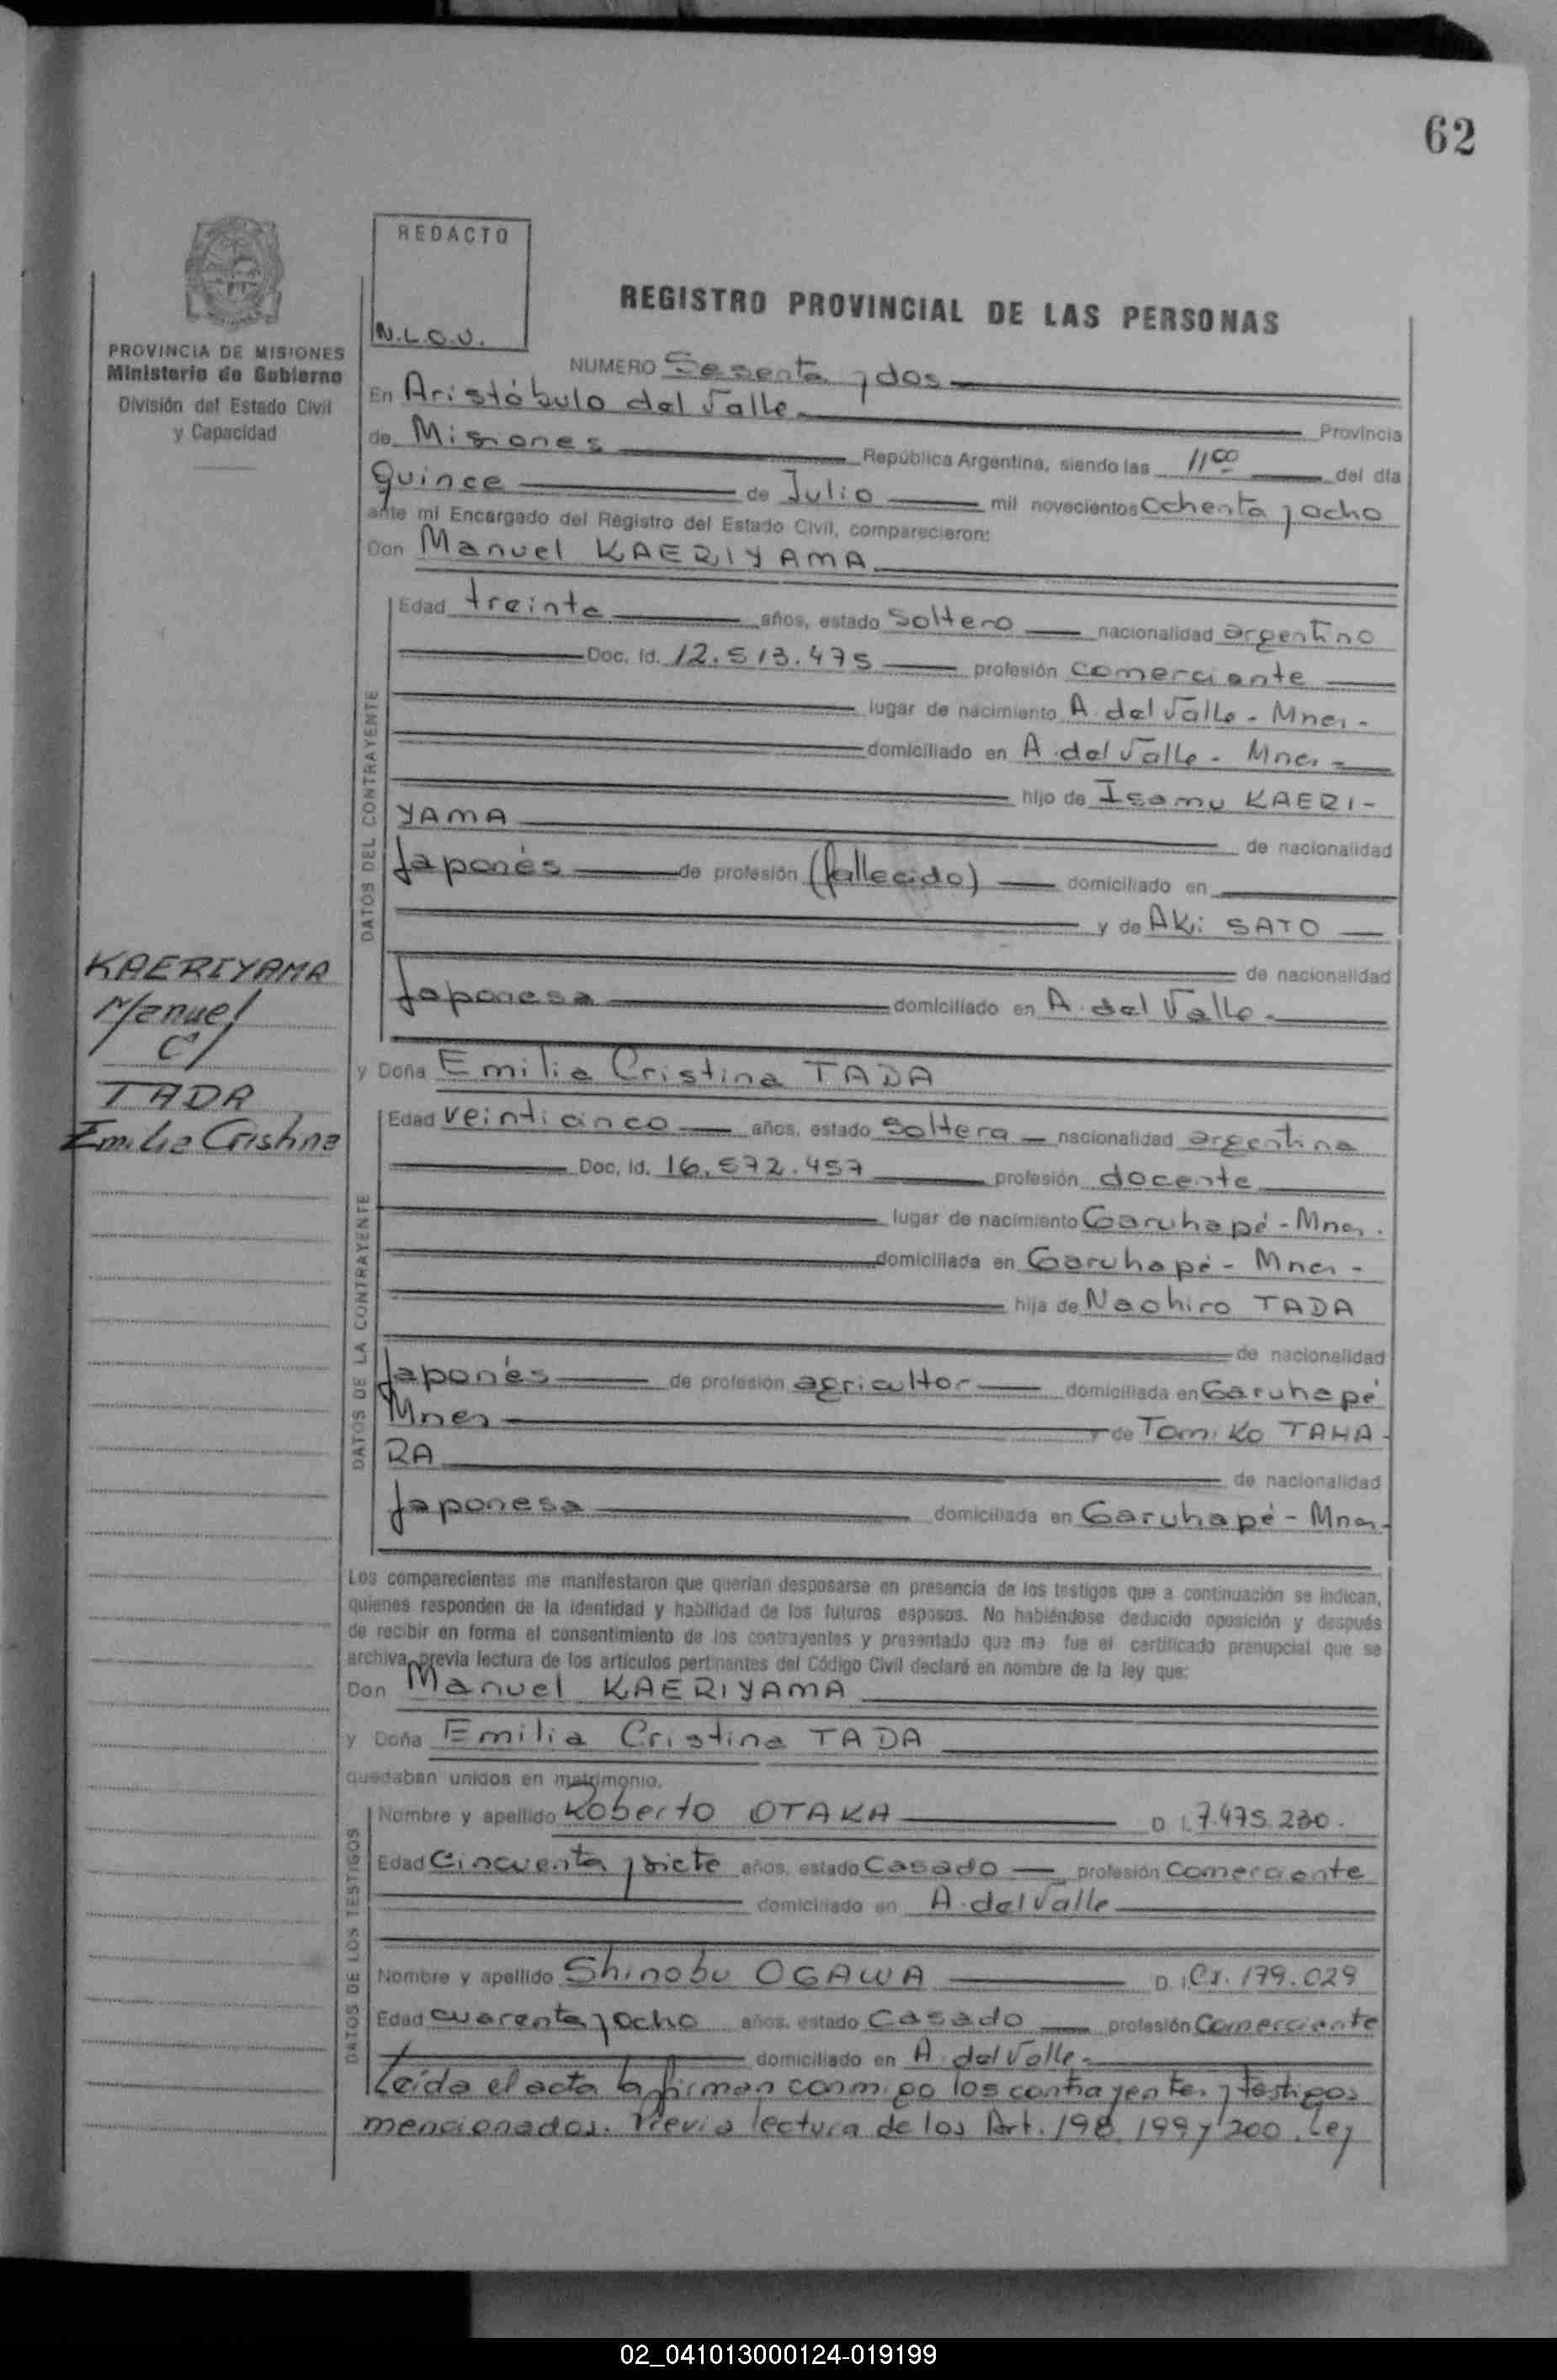 62
REDACTO
N.L.O.U.
PROVINCIA DE MISIONES
Ministerio de Gobierno
División del Estado Civil
y Capacidad
REGISTRO PROVINCIAL DE LAS PERSONAS
NUMERO Sesenta y dos
En Aristóbulo del Valle
Provincia
de Misiones República Argentina, siendo las 11 00 del día
quince de Julio mil novecientos ochenta y ocho
ante mí Encargado del Registro del Estado Civil, comparecieron:
Don Manuel KAERIYAMA
DATOS DEL CONTRAYENTE
Edad treinta años, estado soltero nacionalidad argentino
Doc. Id. 12.513.475 profesión comerciante
lugar de nacimiento A. del Valle - Mnes -
domiciliado en A. del Valle - Mnes -
hijo de Isamu KAERI-
YAMA de nacionalidad
Japonés de profesión (fallecido) domiciliado en
y de Aki SATO
de nacionalidad
Japonesa domiciliado en A. del Valle.
KAERIYAMA
Manuel
C/
TADA
Emilia Cristina
y Doña Emilia Cristina TADA
DATOS DE LA CONTRAYENTE
Edad veinticinco años, estado Soltera nacionalidad argentina
Doc. Id. 16.572.457 profesión docente
lugar de nacimiento Garuhapé - Mnes.
domiciliada en Garuhapé - Mnes -
hija de Naohiro TADA
de nacionalidad
Japonés de profesión agricultor domiciliada en Garuhapé
Mnes y de Tomiko TAHA-
RA de nacionalidad
Japonesa domiciliada en Garuhapé - Mnes-
Los comparecientes me manifestaron que querían desposarse en presencia de los testigos que a continuación se indican,
quienes responden de la identidad y habilidad de los futuros esposos. No habiéndose deducido oposición y después
de recibir en forma el consentimiento de los contrayentes y presentado que me fue el certificado prenupcial que se
archiva, previa lectura de los artículos pertinentes del Código Civil declaré en nombre de la ley que:
Don Manuel KAERIYAMA
y Doña Emilia Cristina TADA
quedaban unidos en matrimonio.
DATOS DE LOS TESTIGOS
Nombre y apellido Roberto OTAKA D. I. 7.475.230.
Edad Cincuenta y siete años, estado Casado profesión Comerciante
domiciliado en A. del Valle
Nombre y apellido Shinobu OGAWA D. I. Cx. 179.029
Edad cuarenta y ocho años, estado Casado profesión Comerciante
domiciliado en A. del Valle.
Leída el acta la firman conmigo los contrayentes y testigos
mencionados. Previa lectura de los Art. 198, 199 y 200. Ley
02_041013000124-019199